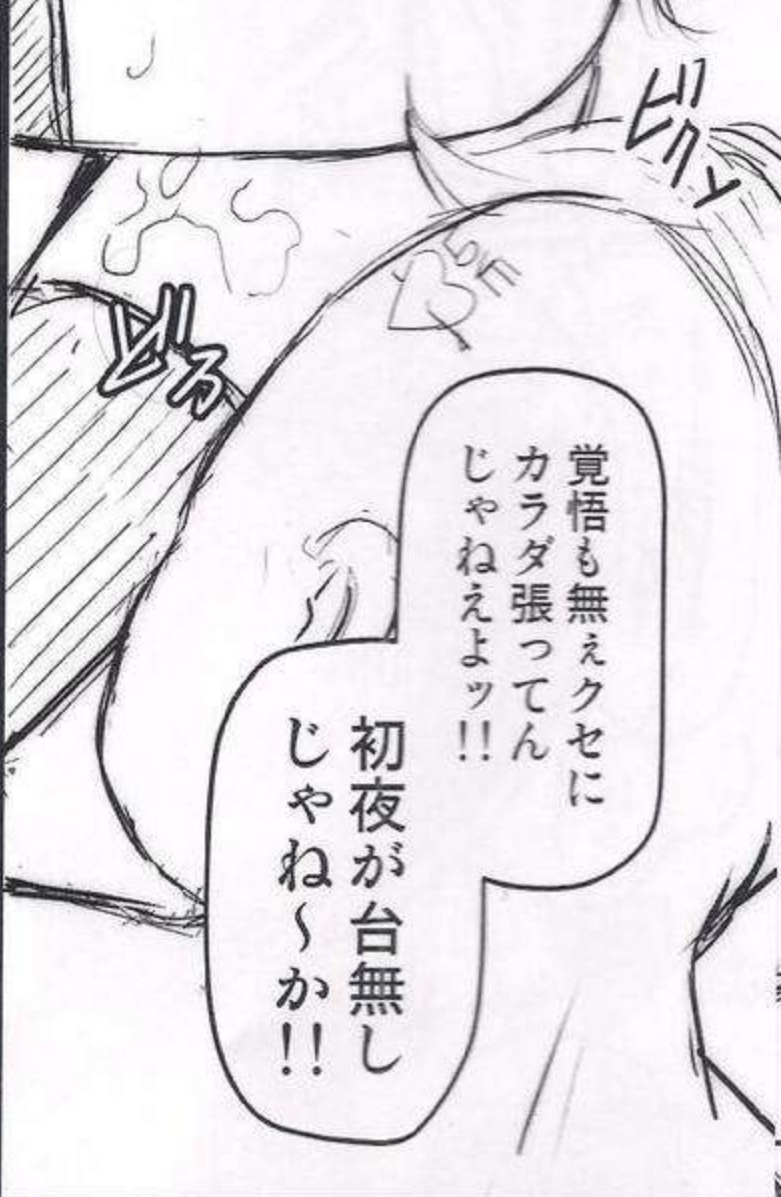 ビクッ
覚悟も無ぇクセに
カラダ張ってん
じゃねえよッ!!
どろ
初夜が台無し
じゃね～か!!